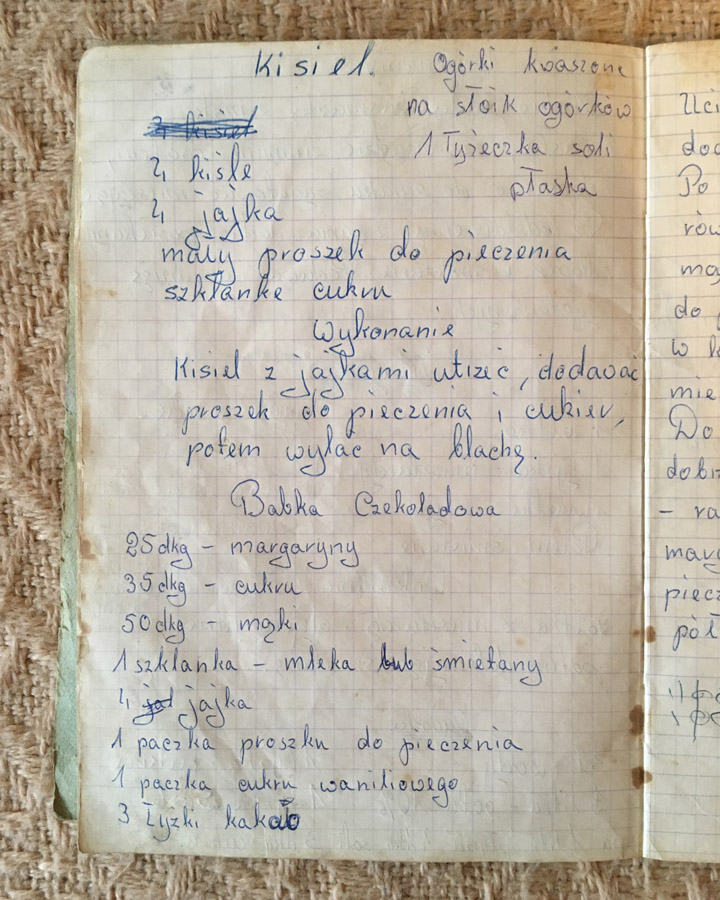 Kisiel.
Ogórki kwaszone
na słoik ogórków
1 łyżeczka soli
płaska
4 kiśle
4 jajka
mały proszek do pieczenia
szklankę cukru
Wykonanie
Kisiel z jajkami utrzeć, dodawać
proszek do pieczenia i cukier,
potem wylać na blachę.
Babka Czekoladowa
25 dkg - margaryny
35 dkg - cukru
50 dkg - mąki
1 szklanka - mleka lub śmietany
4 jajka
1 paczka proszku do pieczenia
1 paczka cukru waniliowego
3 łyżki kakao
Uci
dod
Po
rów
mą
do
w
mie
Do
dobrz
- ra
marg
piecz
pół